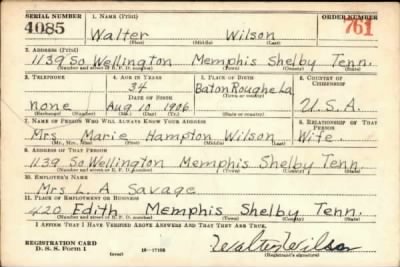 SERIAL NUMBER 1. NAME (Print) ORDER NUMBER
4085 Walter Wilson 761
(First) (Middle) (Last)
2. ADDRESS (Print)
1139 So Wellington Memphis Shelby Tenn.
(Number and street or R. F. D. number) (Town) (County) (State)
3. TELEPHONE 4. AGE IN YEARS 5. PLACE OF BIRTH 6. COUNTRY OF CITIZENSHIP
34 Baton Roughe La
DATE OF BIRTH (Town or county)
none Aug 10 1906 U.S.A.
(Exchange) (Number) (Mo.) (Day) (Yr.) (State or country)
7. NAME OF PERSON WHO WILL ALWAYS KNOW YOUR ADDRESS 8. RELATIONSHIP OF THAT PERSON
Mrs Marie Hampton Wilson Wife
(Mr., Mrs., Miss) (First) (Middle) (Last)
9. ADDRESS OF THAT PERSON
1139 So Wellington Memphis Shelby Tenn.
(Number and street or R. F. D. number) (Town) (County) (State)
10. EMPLOYER'S NAME
Mrs L. A Savage
11. PLACE OF EMPLOYMENT OR BUSINESS
420 Edith Memphis Shelby Tenn.
(Number and street or R. F. D. number) (Town) (County) (State)
I AFFIRM THAT I HAVE VERIFIED ABOVE ANSWERS AND THAT THEY ARE TRUE.
REGISTRATION CARD
D. S. S. Form 1 (over) 16—17105 Walter Wilson
(Registrant's signature)